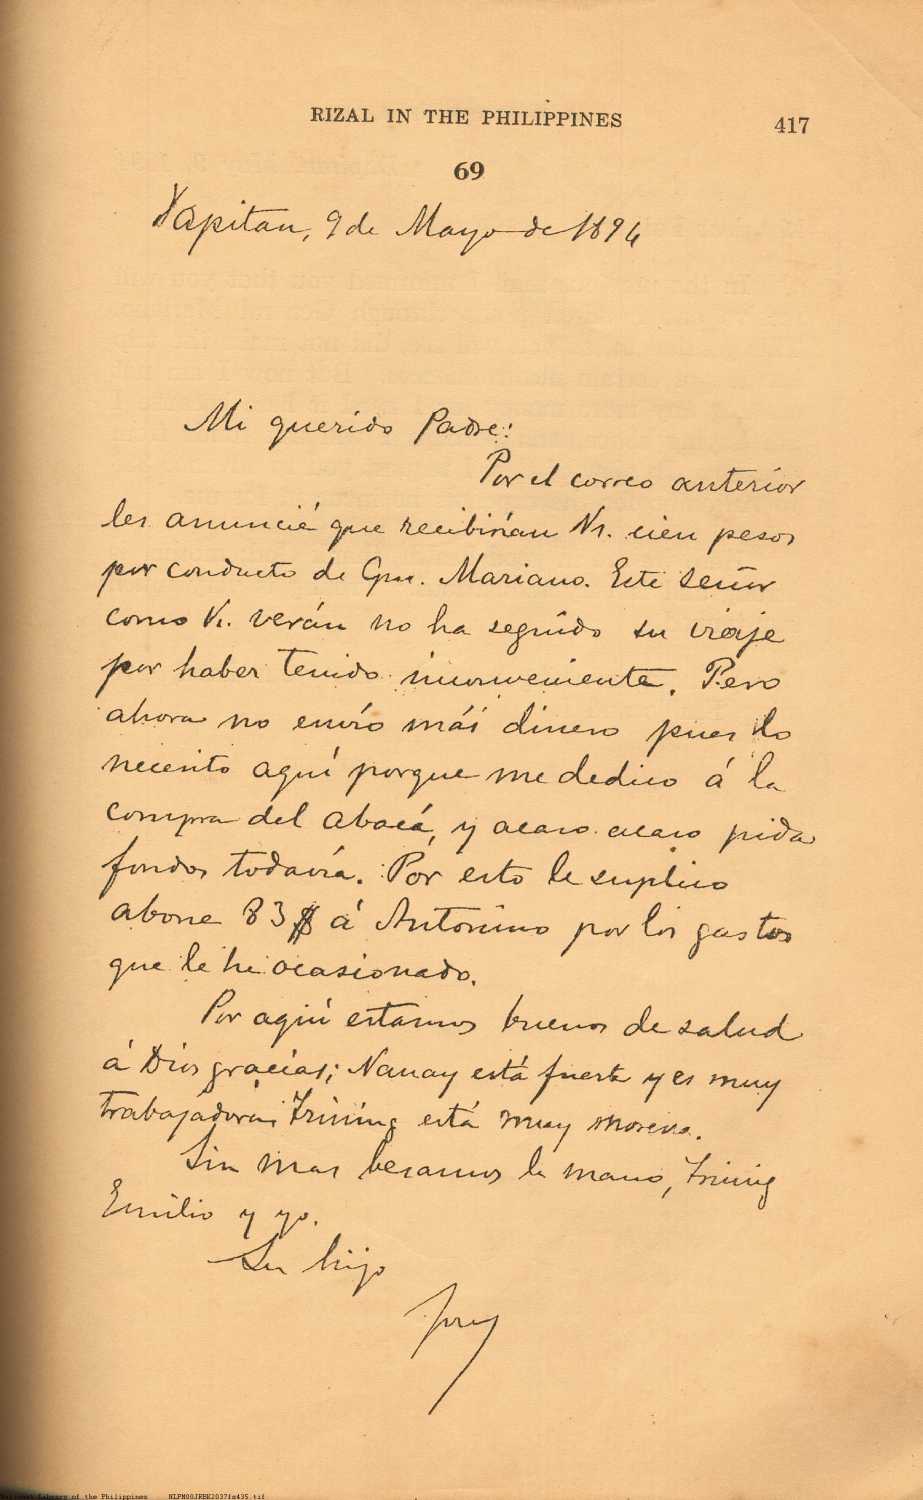 RIZAL IN THE PHILIPPINES 417
69
Dapitan, 9 de Mayo de 1894
Mi querido Padre:
Por el correo anterior
les anuncié que recibirían Vs. cien pesos
por conducto de Gm. Mariano. Este señor
como Vs. verán no ha seguido su viaje
por haber tenido inconveniente. Pero
ahora no envío más dinero pues lo
necesito aquí porque me dedico á la
compra del abacá, y acaso acaso pida
fondos todavía. Por esto le suplico
abone 83 $ á Antonino por los gastos
que le he ocasionado.
Por aquí estamos buenos de salud
á Dios gracias; Nanay está fuerte y es muy
trabajadora; Trining está muy morena.
Sin mas besamos la mano, Trining
Emilio y yo.
Su hijo
José
National Library of the Philippines NLPM00JRBK2037fs435.tif